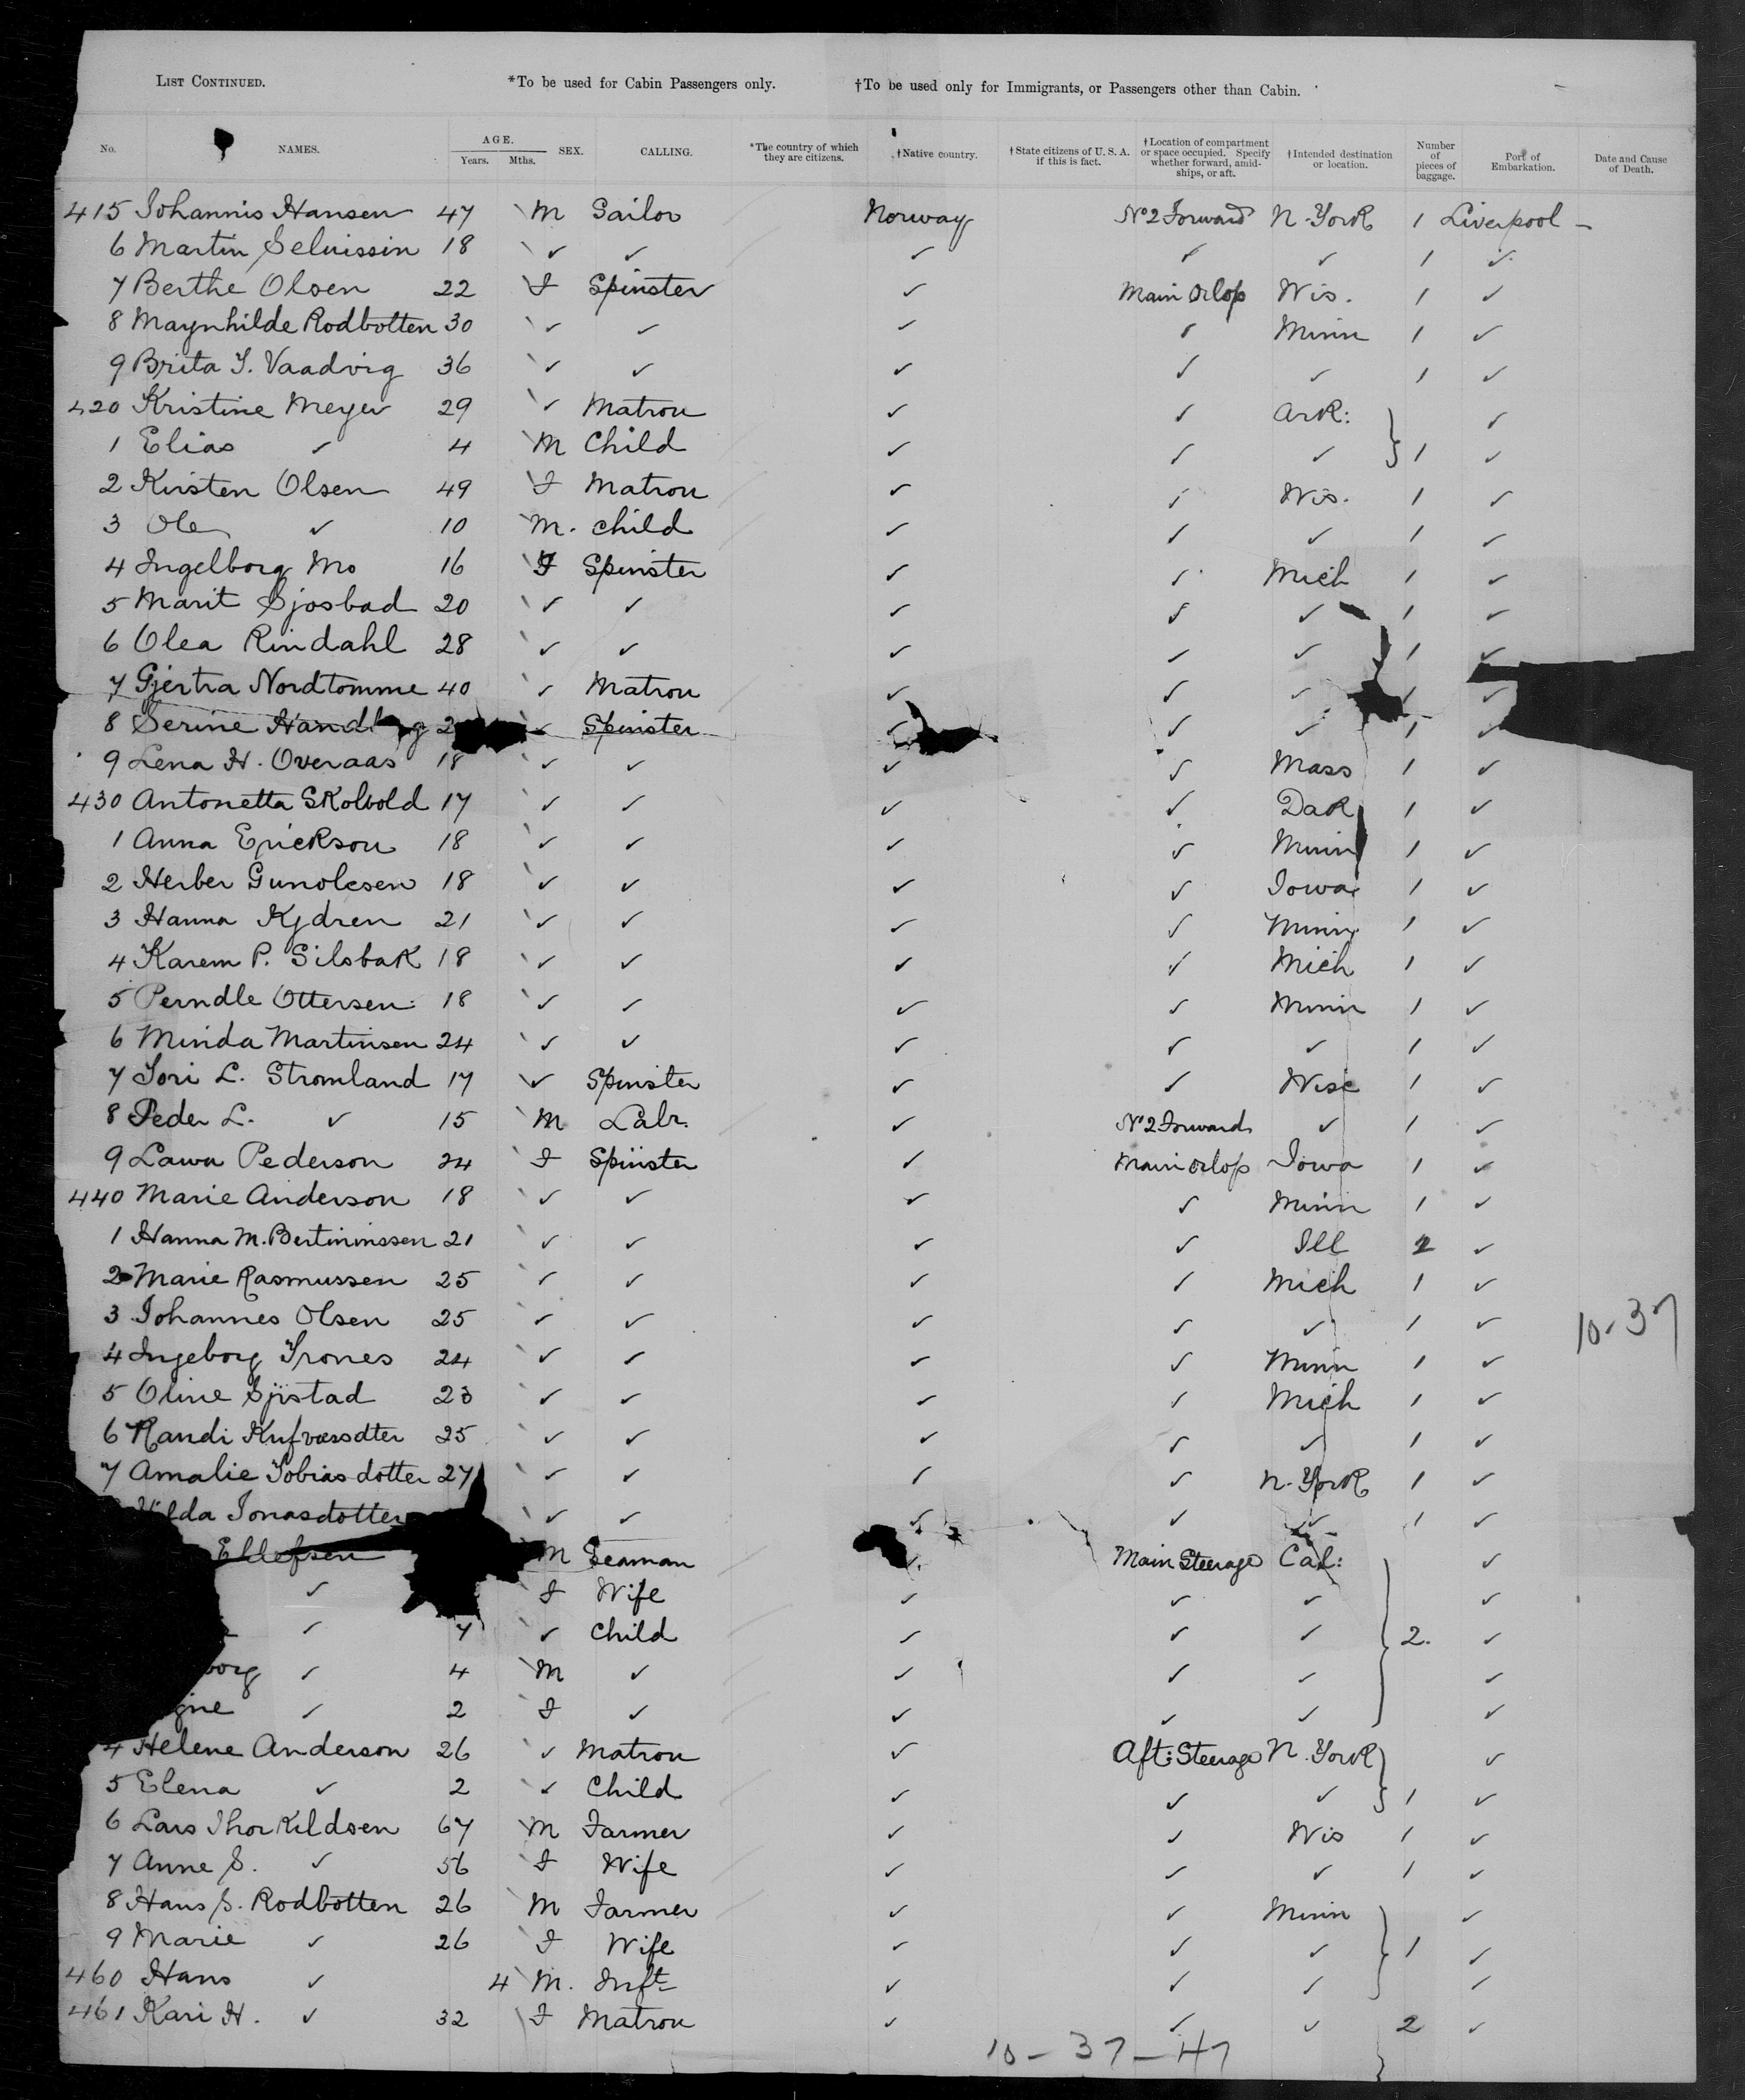 LIST CONTINUED. *To be used for Cabin Passengers only. †To be used only for Immigrants, or Passengers other than Cabin.
No. NAMES. AGE. Years. Mths. SEX. CALLING. *The country of which they are citizens. †Native country. †State citizens of U. S. A. if this is fact. †Location of compartment or space occupied. Specify whether forward, amidships, or aft. †Intended destination or location. Number of pieces of baggage. Port of Embarkation. Date and Cause of Death.
415 Johannis Hansen 47 M Sailor Norway No 2 Forward N. York 1 Liverpool –
6 Martin Seluissin 18 ✓ ✓ ✓ ✓ ✓ 1 ✓
7 Berthe Olsen 22 F Spinster ✓ Main Orlop Wis. 1 ✓
8 Maynhilde Rodbotten 30 ✓ ✓ ✓ ✓ Minn 1 ✓
9 Brita T. Vaadvig 36 ✓ ✓ ✓ ✓ ✓ 1 ✓
420 Kristine Meyer 29 ✓ Matron ✓ ✓ Ark: ✓
1 Elias ✓ 4 M Child ✓ ✓ ✓ 1 ✓
2 Kirsten Olsen 49 F Matron ✓ ✓ Wis. 1 ✓
3 Ole ✓ 10 M. Child ✓ ✓ ✓ 1 ✓
4 Ingelborg Mo 16 F Spinster ✓ ✓ Mich 1 ✓
5 Marit Sjosbad 20 ✓ ✓ ✓ ✓ ✓ 1 ✓
6 Olea Rindahl 28 ✓ ✓ ✓ ✓ ✓ 1 ✓
7 Gjertra Nordtomme 40 ✓ Matron ✓ ✓ ✓ 1 ✓
8 Serine 2 ✓ Spinster ✓ ✓ ✓ 1 ✓
9 Lena H. Overaas 18 ✓ ✓ ✓ ✓ Mass 1 ✓
430 Antonetta Skolvold 17 ✓ ✓ ✓ ✓ Dak 1 ✓
1 Anna Erickson 18 ✓ ✓ ✓ ✓ Minn 1 ✓
2 Herber Gunolesen 18 ✓ ✓ ✓ ✓ Iowa 1 ✓
3 Hanna Kjdren 21 ✓ ✓ ✓ ✓ Minn 1 ✓
4 Karem P. Silsbak 18 ✓ ✓ ✓ ✓ Mich 1 ✓
5 Perndle Ottersen 18 ✓ ✓ ✓ ✓ Minn 1 ✓
6 Minda Martinsen 24 ✓ ✓ ✓ ✓ ✓ 1 ✓
7 Tori L. Stromland 17 ✓ Spinster ✓ ✓ Wisc 1 ✓
8 Peder L. ✓ 15 M Labr. ✓ No 2 Forward ✓ 1 ✓
9 Lawa Pederson 24 F Spinster ✓ Main Orlop Iowa 1 ✓
440 Marie Anderson 18 ✓ ✓ ✓ ✓ Minn 1 ✓
1 Hanna M. Bertininssen 21 ✓ ✓ ✓ ✓ Ill 2 ✓
2 Marie Rasmussen 25 ✓ ✓ ✓ ✓ Mich 1 ✓
3 Johannes Olsen 25 ✓ ✓ ✓ ✓ ✓ 1 ✓
10-37
4 Ingeborg Trones 24 ✓ ✓ ✓ ✓ Minn 1 ✓
5 Oline Sjistad 23 ✓ ✓ ✓ ✓ Mich 1 ✓
6 Randi 25 ✓ ✓ ✓ ✓ ✓ 1 ✓
7 Amalie Tobiasdotter 27 ✓ ✓ ✓ ✓ N. York 1 ✓
Hilda Jonasdotter ✓ ✓ ✓ ✓ ✓ 1 ✓
Ellefsen M Seaman ✓ Main Steerage Cal: ✓
✓ F Wife ✓ ✓ ✓ ✓
✓ 7 ✓ Child ✓ ✓ ✓ 2. ✓
borg ✓ 4 M ✓ ✓ ✓ ✓ ✓
gne ✓ 2 F ✓ ✓ ✓ ✓ ✓
4 Helene Anderson 26 ✓ Matron ✓ Aft: Steerage N. York ✓
5 Elena ✓ 2 ✓ Child ✓ ✓ ✓ 1 ✓
6 Lars Thorkildsen 67 M Farmer ✓ ✓ Wis 1 ✓
7 Anne S. ✓ 56 F Wife ✓ ✓ ✓ 1 ✓
8 Hans S. Rodbotten 26 M Farmer ✓ ✓ Minn ✓
9 Marie ✓ 26 F Wife ✓ ✓ ✓ 1 ✓
460 Hans ✓ 4 M. Inft ✓ ✓ ✓ ✓
461 Kari H. ✓ 32 F Matron ✓ ✓ ✓ 2 ✓
10-37-47